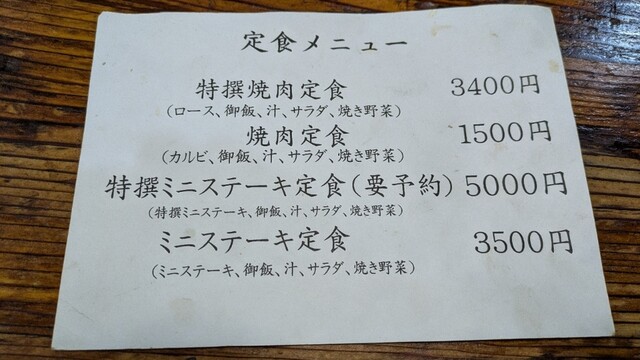 定食メニュー
特撰焼肉定食 3400円
(ロース、御飯、汁、サラダ、焼き野菜)
焼肉定食 1500円
(カルビ、御飯、汁、サラダ、焼き野菜)
特撰ミニステーキ定食(要予約) 5000円
(特撰ミニステーキ、御飯、汁、サラダ、焼き野菜)
ミニステーキ定食 3500円
(ミニステーキ、御飯、汁、サラダ、焼き野菜)